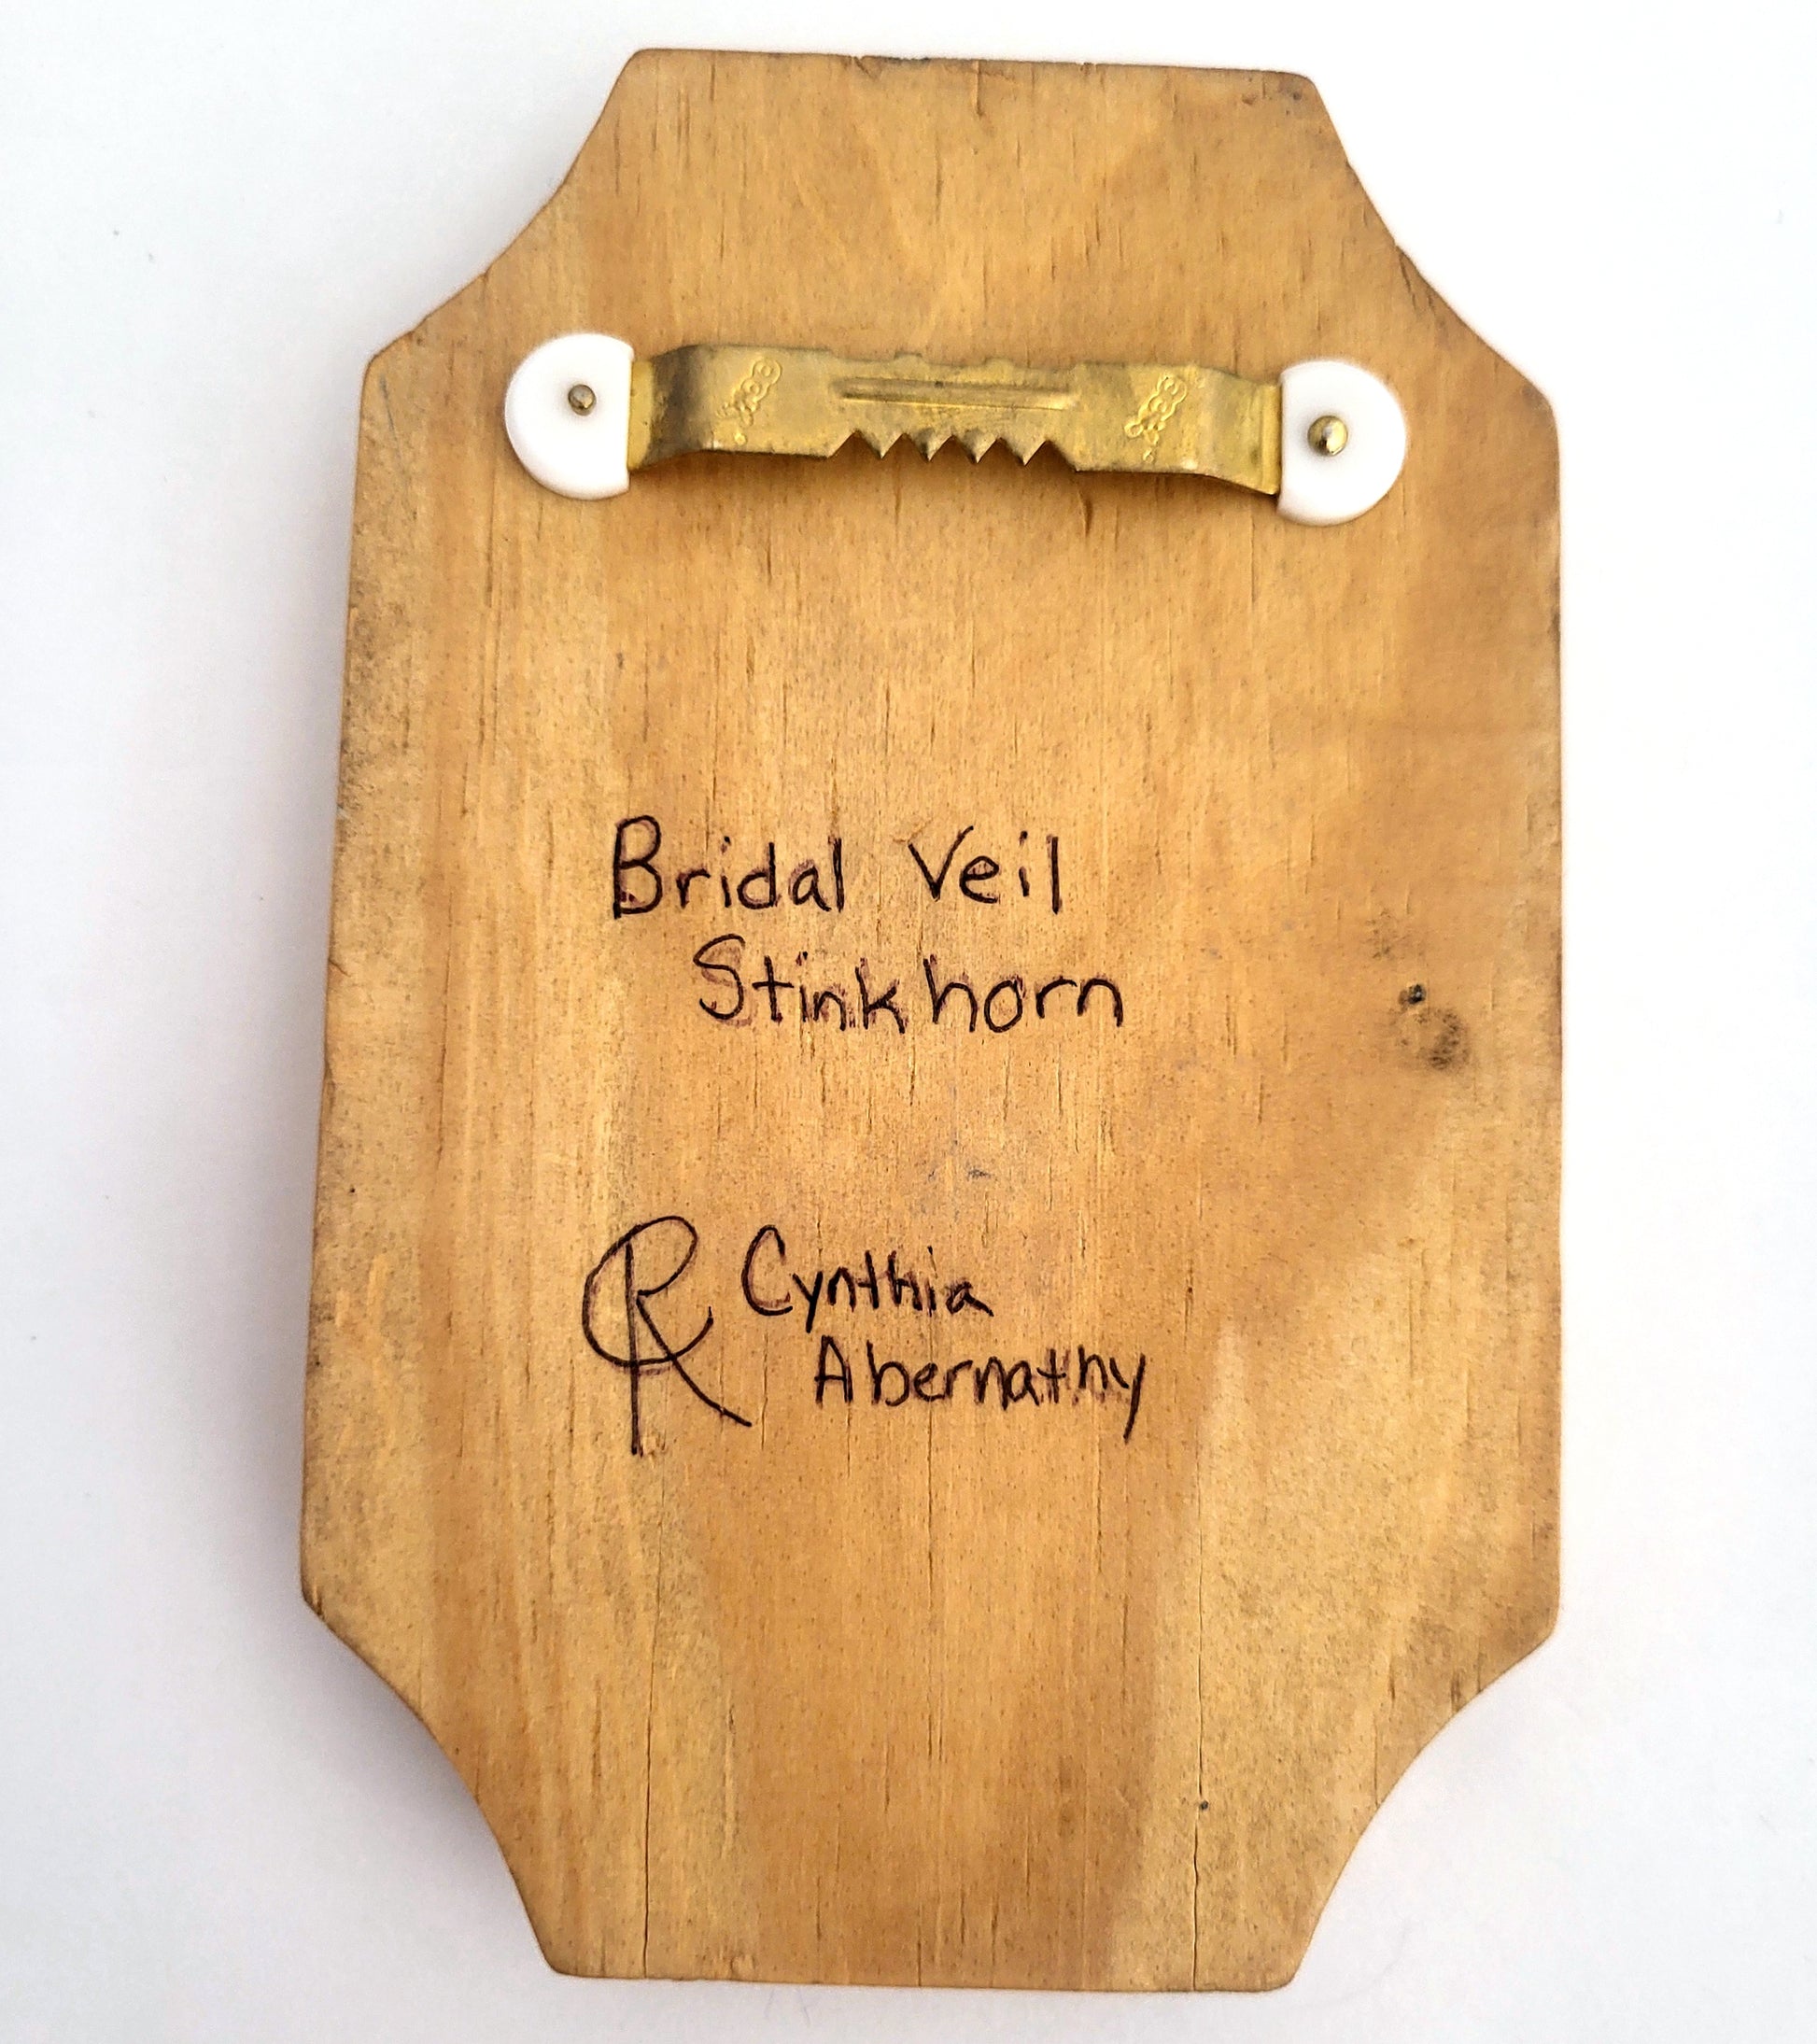 Bridal Veil
Stinkhorn
Cynthia
Abernathy